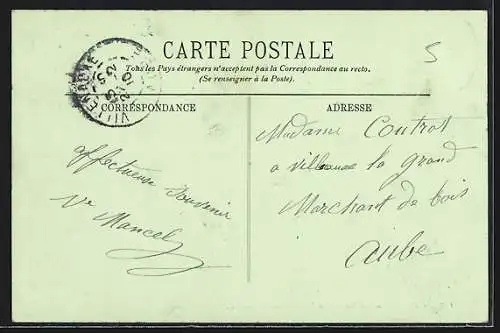 CARTE POSTALE
Tous les Pays étrangers n'acceptent pas la Correspondance au recto.
(Se renseigner à la Poste).
CORRESPONDANCE
ADRESSE
5
affectueux Souvenir
Vve Mancel
Madame Controt
a villeneuve la grand
Marchant de bois
Aube